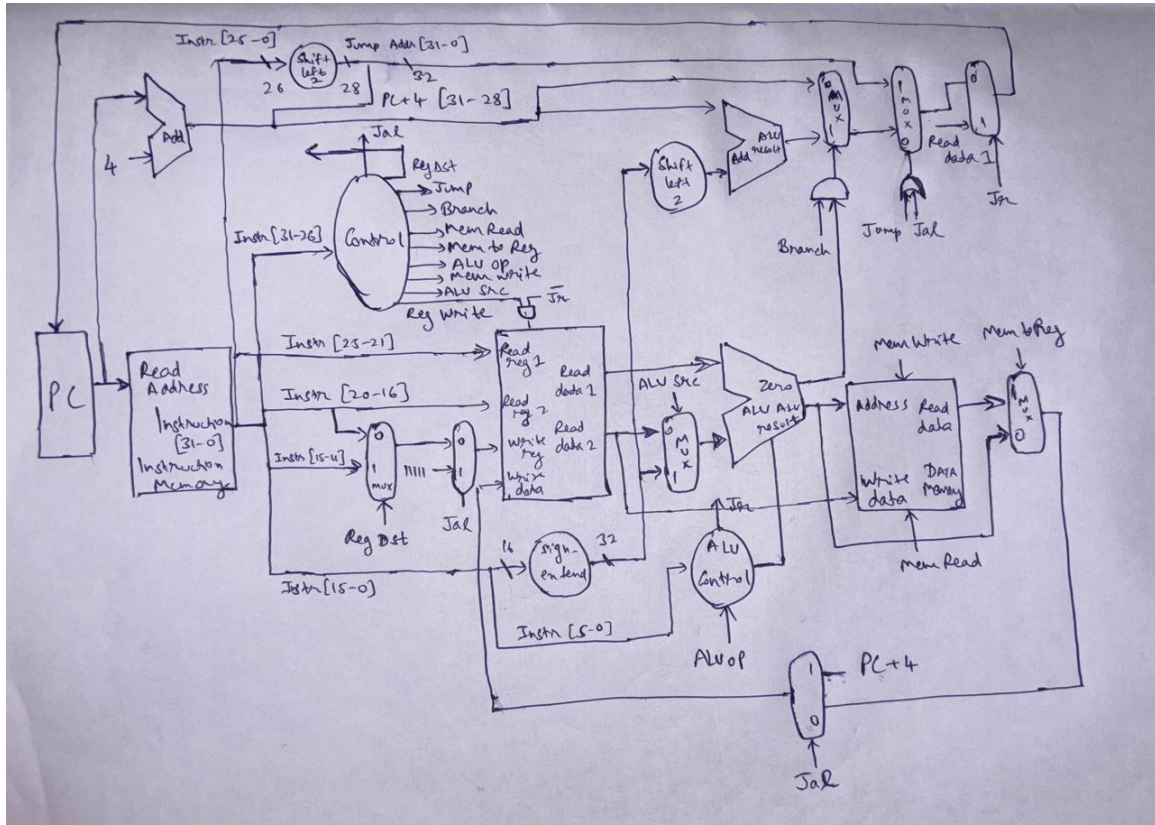 Instr [25-0]
Shift
left
2
Jump Addr [31-0]
26
28
32
PC+4 [31-28]
Add
4
Jal
Reg Dst
Jump
Branch
Mem Read
Mem to Reg
ALU OP
Mem Write
ALU Src
Reg Write
Control
Instr [31-26]
Jr
Shift
left
2
Add
ALU
result
0
MUX
1
1
MUX
0
0
1
Read
data 1
Jr
Branch
Jump Jal
PC
Read
Address
Instruction
[31-0]
Instruction
Memory
Instr [25-21]
Instr [20-16]
Instr [15-11]
0
1
MUX
Reg Dst
11111
0
1
Jal
Read
reg 1
Read
reg 2
Write
reg
Write
data
Read
data 1
Read
data 2
ALU Src
0
MUX
1
Zero
ALU ALU
result
Mem Write
Address
Read
data
Write
data
DATA
Memory
Mem Read
Mem to Reg
1
MUX
0
Instr [15-0]
16
sign-
extend
32
Jr
ALU
Control
Instr [5-0]
ALU OP
1
0
PC+4
Jal